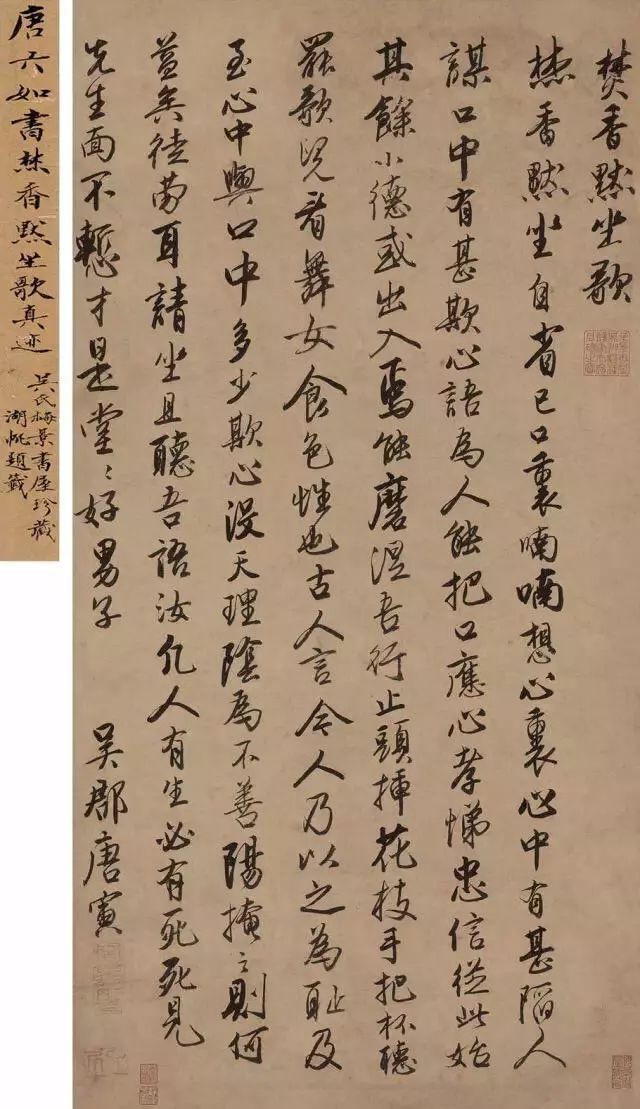 焚香默坐歌
焚香默坐自省己口裏喃喃想心裏心中有甚陷人
謀口中有甚欺心語為人能把口應心孝悌忠信從此始
其餘小德或出入焉能磨涅吾行止頭插花枝手把杯聽
罷歌兒看舞女食色性也古人言今人乃以之為耻及
至心中與口中多少欺心沒天理陰為不善陽掩之則何
益矣徒勞耳請坐且聽吾語汝凡人有生必有死死見
先生面不慙才是堂〻好男子
吳郡唐寅
唐六如書焚香默坐歌真迹
吳氏梅景書屋珍藏
湖帆題籤